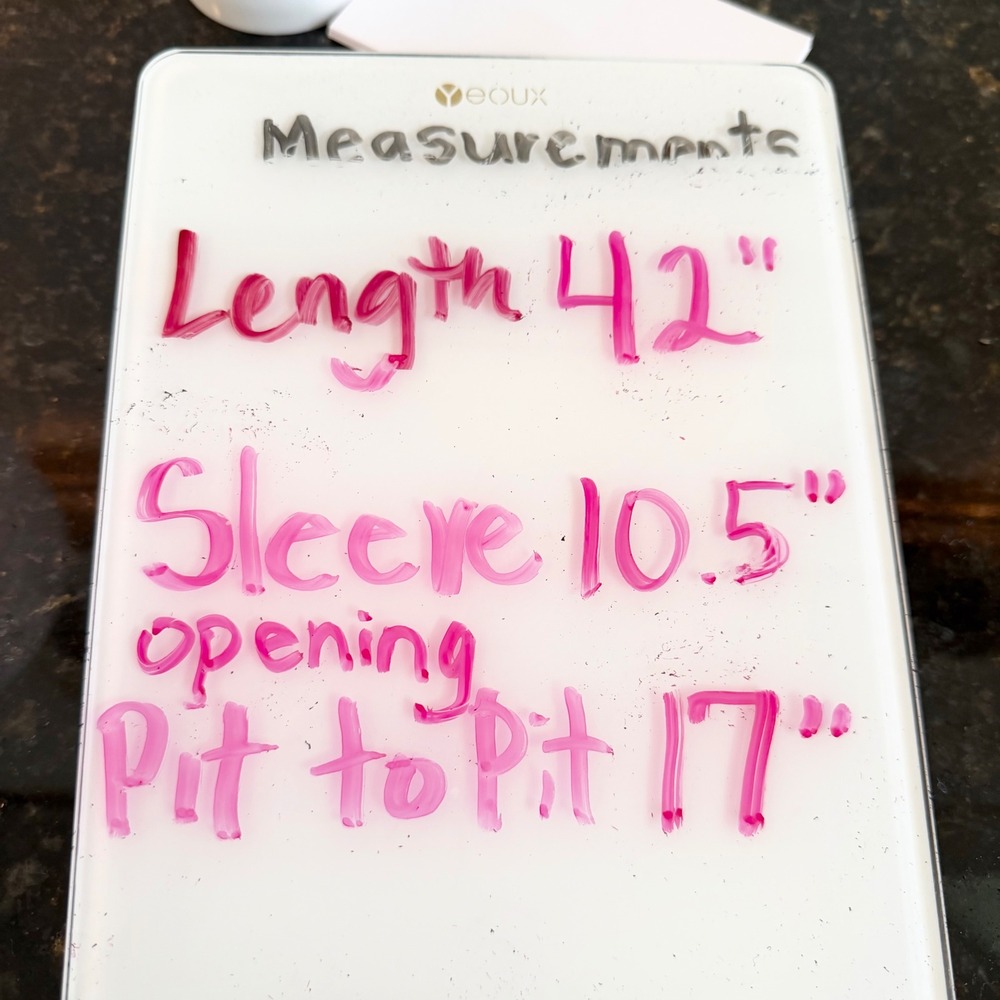 Yeoux
Measurements
Length 42"
Sleeve 10.5"
opening
Pit to Pit 17"